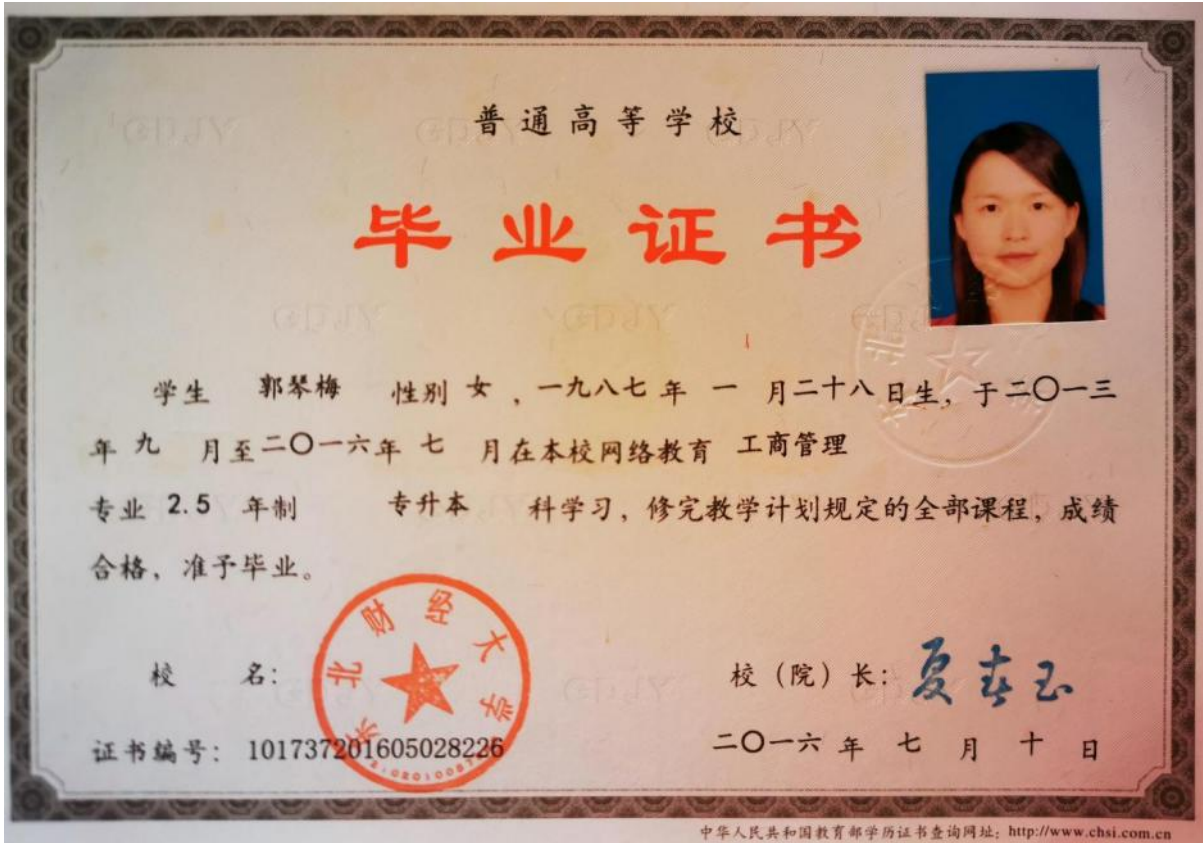 普通高等学校
毕业证书
学生 郭琴梅 性别 女，一九八七年 一 月二十八日生，于二〇一三
年 九 月至二〇一六年 七 月在本校网络教育 工商管理
专业 2.5 年制 专升本 科学习，修完教学计划规定的全部课程，成绩
合格，准予毕业。
校 名：
东北财经大学
校（院）长：夏春玉
证书编号：101737201605028226
二〇一六 年 七 月 十 日
中华人民共和国教育部学历证书查询网址：http://www.chsi.com.cn